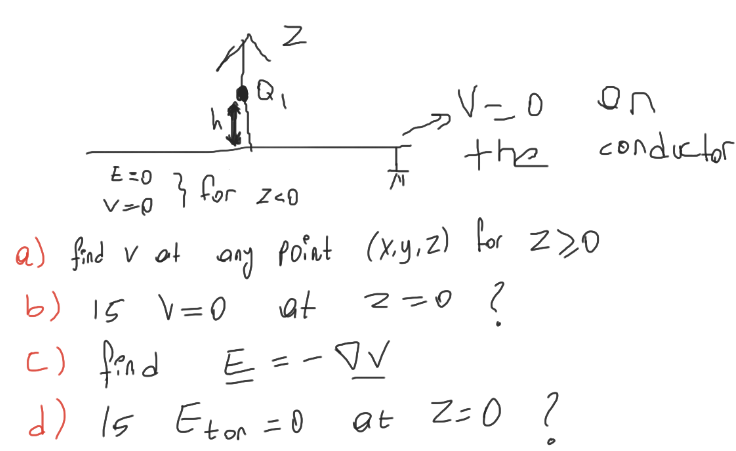 Z
Q1
h
V=0 on
the conductor
E=0
V=0 } for Z<0
a) find V at any point (x,y,z) for Z≥0
b) is V=0 at z=0 ?
c) find E = -∇V
d) is Etan = 0 at Z=0 ?